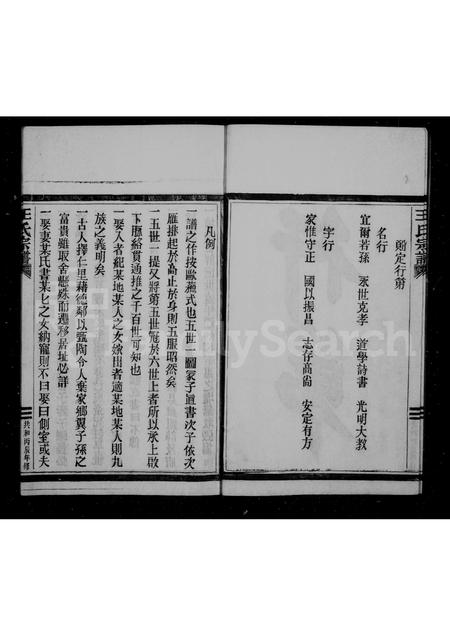 王氏宗譜
顯定行第
名行
宜爾若孫 永世克孝 道學詩書 光明大教
字行
家惟守正 國以振昌 志存高尚 安定有方
凡例
一譜之作按歐蘇式也五世一圖冢子直書次子依次
雁排起於高止於身則五服昭然矣
一五世一提又將第五世冠於六世上者所以承上啟
下脈絡貫通推之千百世可知也
一娶入者紀某地某人之女嫁出者適某地某人則九
族之義明矣
一古人擇仁里藉德鄰以甄陶令人棄家鄉翼子孫之
富貴雖取舍懸殊而遷移居址必詳
一娶妻某氏書某公之女納寵則不曰娶曰側室或夫
王氏宗譜
共和丙辰年修
FamilySearch